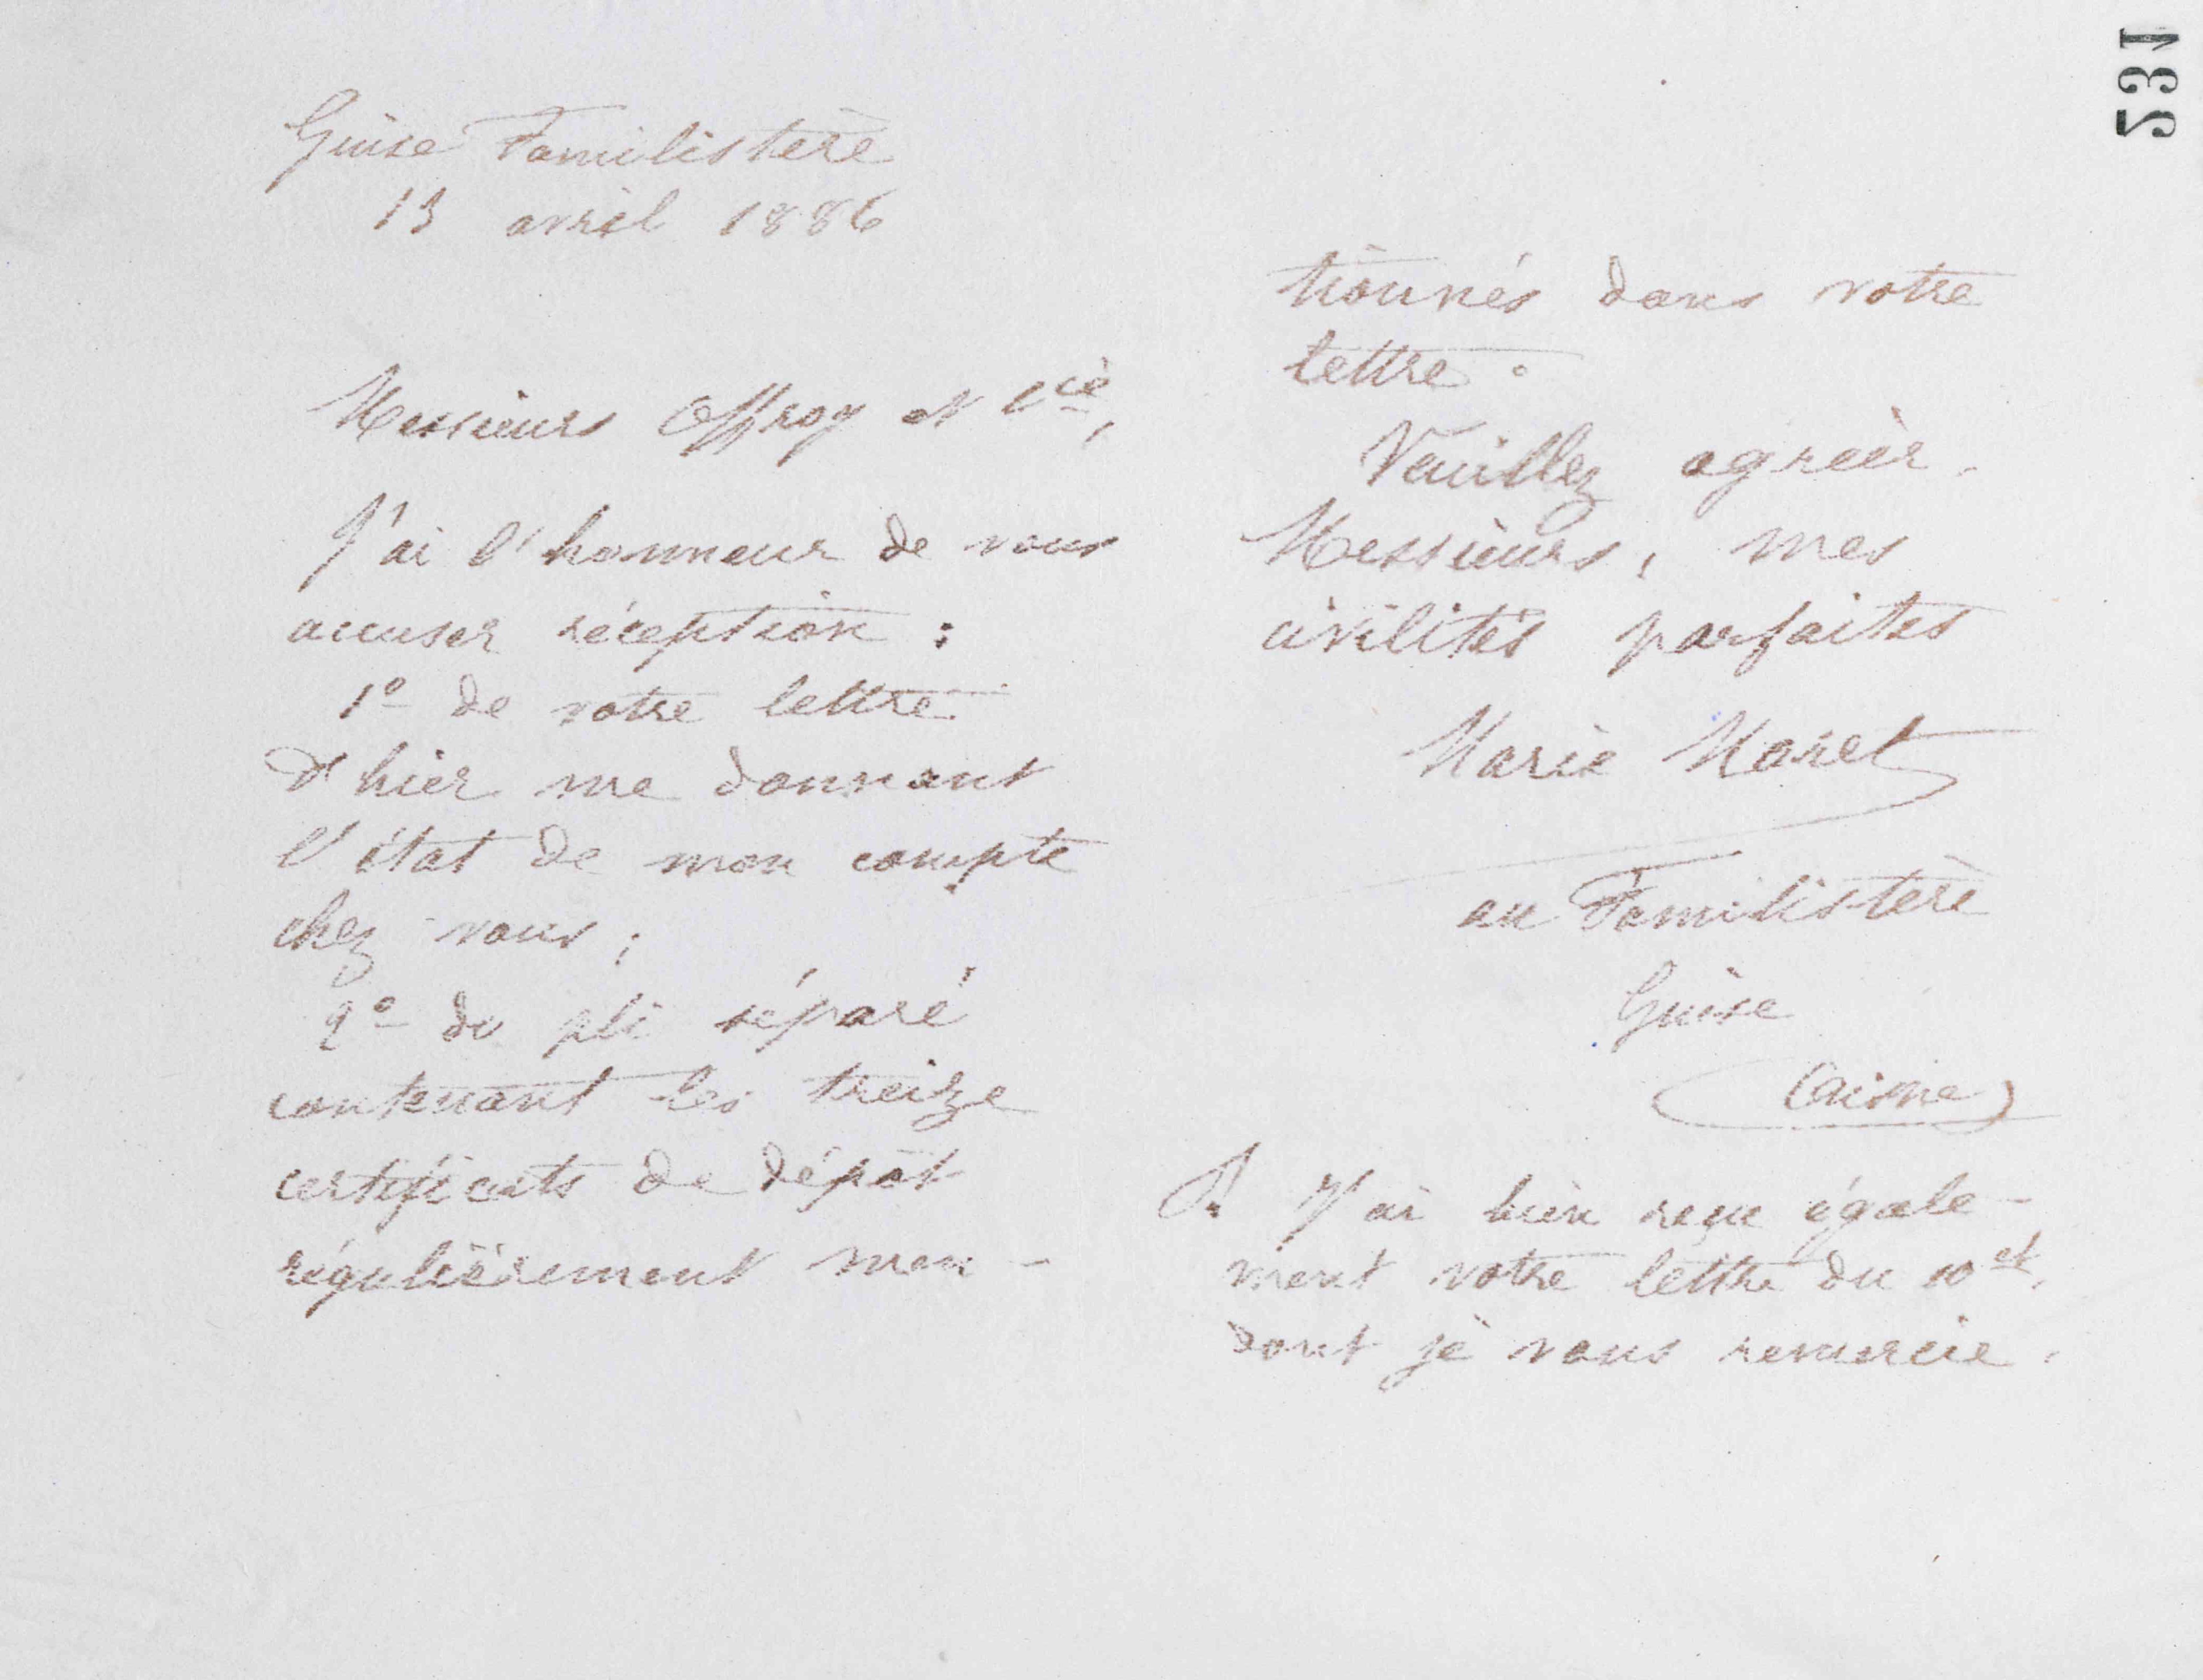 Guise Familistère
13 avril 1886
Messieurs Offroy et Cie,
J'ai l'honneur de vous
accuser réception :
1º de votre lettre
d'hier me donnant
l'état de mon compte
chez vous ;
2º du pli séparé
contenant les treize
certificats de dépôt
régulièrement men-
tionnés dans votre
lettre.
Veuillez agréer,
Messieurs, mes
civilités parfaites
Marie Moret
au Familistère
Guise
(Aisne)
J'ai bien reçu égale-
ment votre lettre du 10 ct,
dont je vous remercie.
531